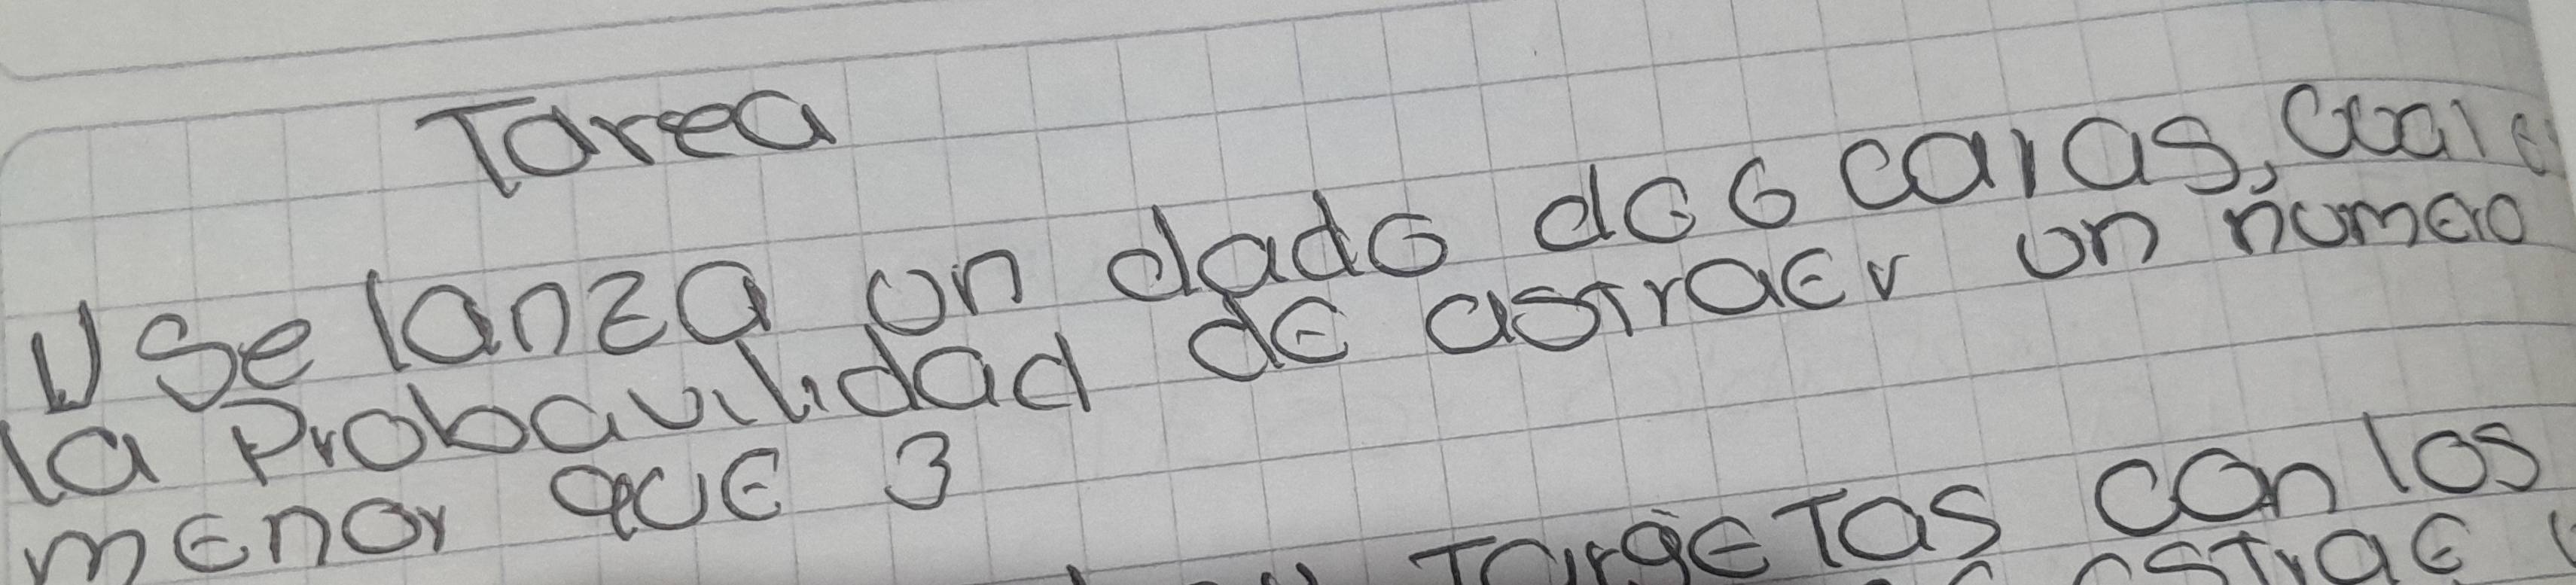 Tarea
1) Se lanza un dado de 6 caras, cual
la Probavilidad de astraer un numero
menor que 3
Targetas con los